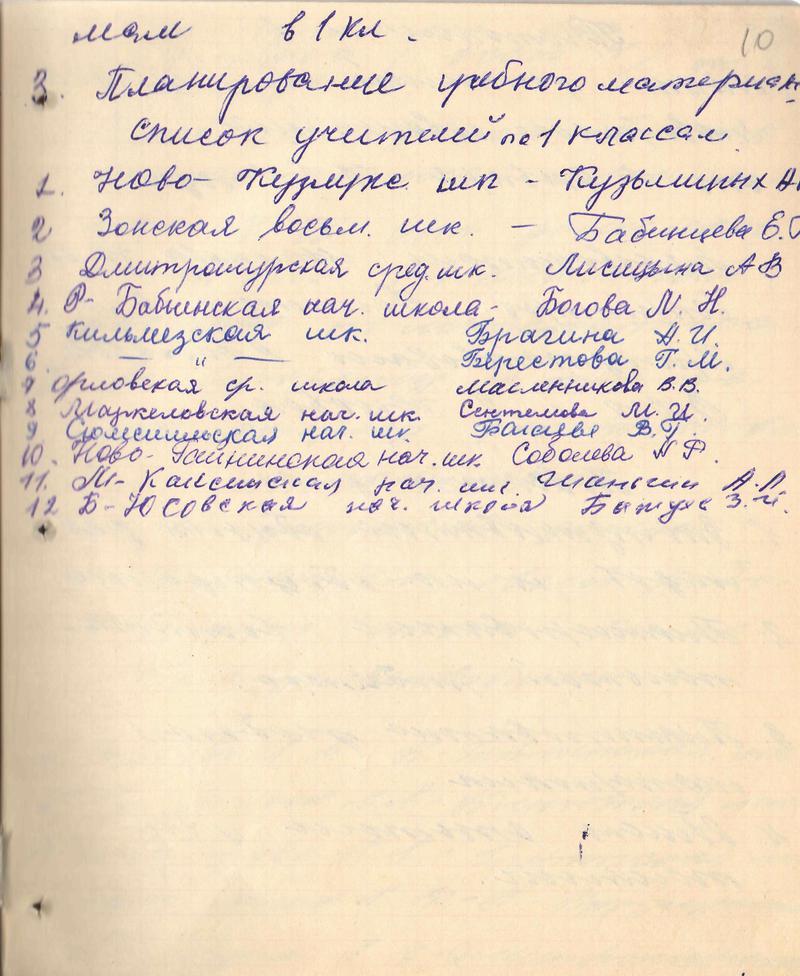 10
мам в 1 кл.
3. Планирование учебного материал
Список учителей по 1 классам
1. Ново- шк - Кузьминых
2 Зонская восьм. шк. — Бабинцева Е.
3 Дмитрошурская сред. шк. Лисицына А В
4. Р- Бабьинская нач. школа - Богова М. Н.
5 Кильмезская шк. Брагина А. И.
6. — " — Берестова Г. М.
7 Орловская ср. школа Масленникова В. В.
8 Маркеловская нач. шк. Сентемова М. И.
9 Сюмсиильская нач. шк В. Г.
10. Ново- нач. шк Соболева
11. М- нач. шк. Шангин А. Л.
12 Б-Юсовская нач. школа З. И.